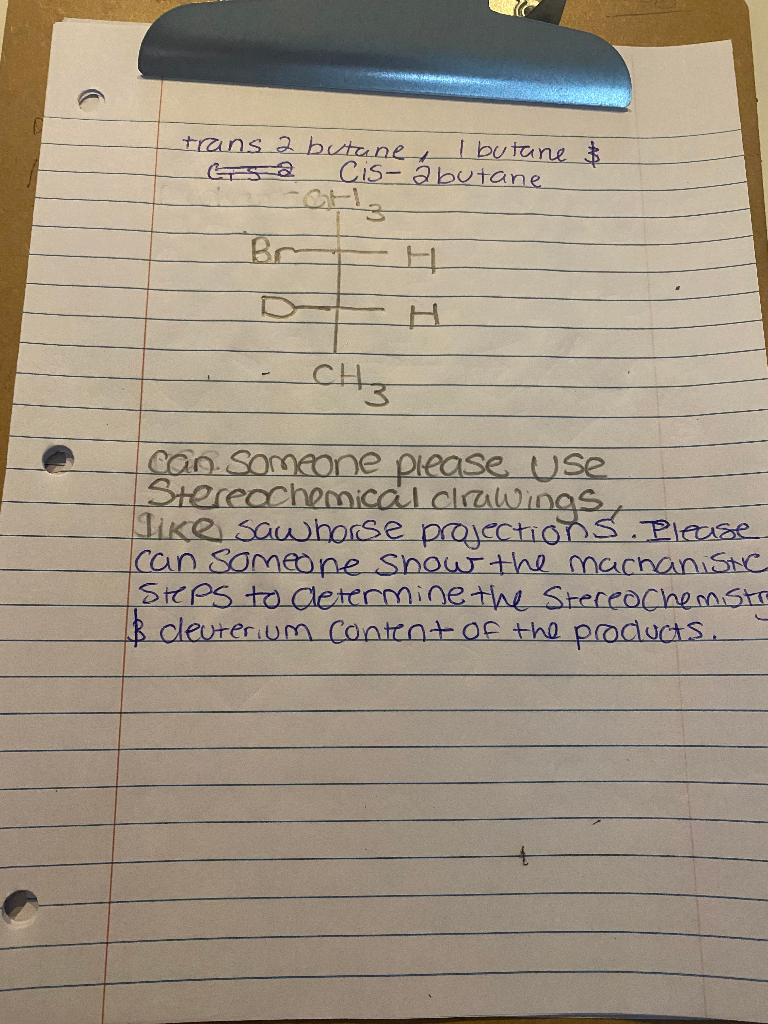 trans 2 butane, 1 butane &
Cis-2 Cis- 2butane
CH3
Br H
D H
CH3
can someone please use
Stereochemical drawings,
like sawhorse projections. Please
can someone show the machanistic
steps to determine the Stereochemistr
& deuterium content of the products.